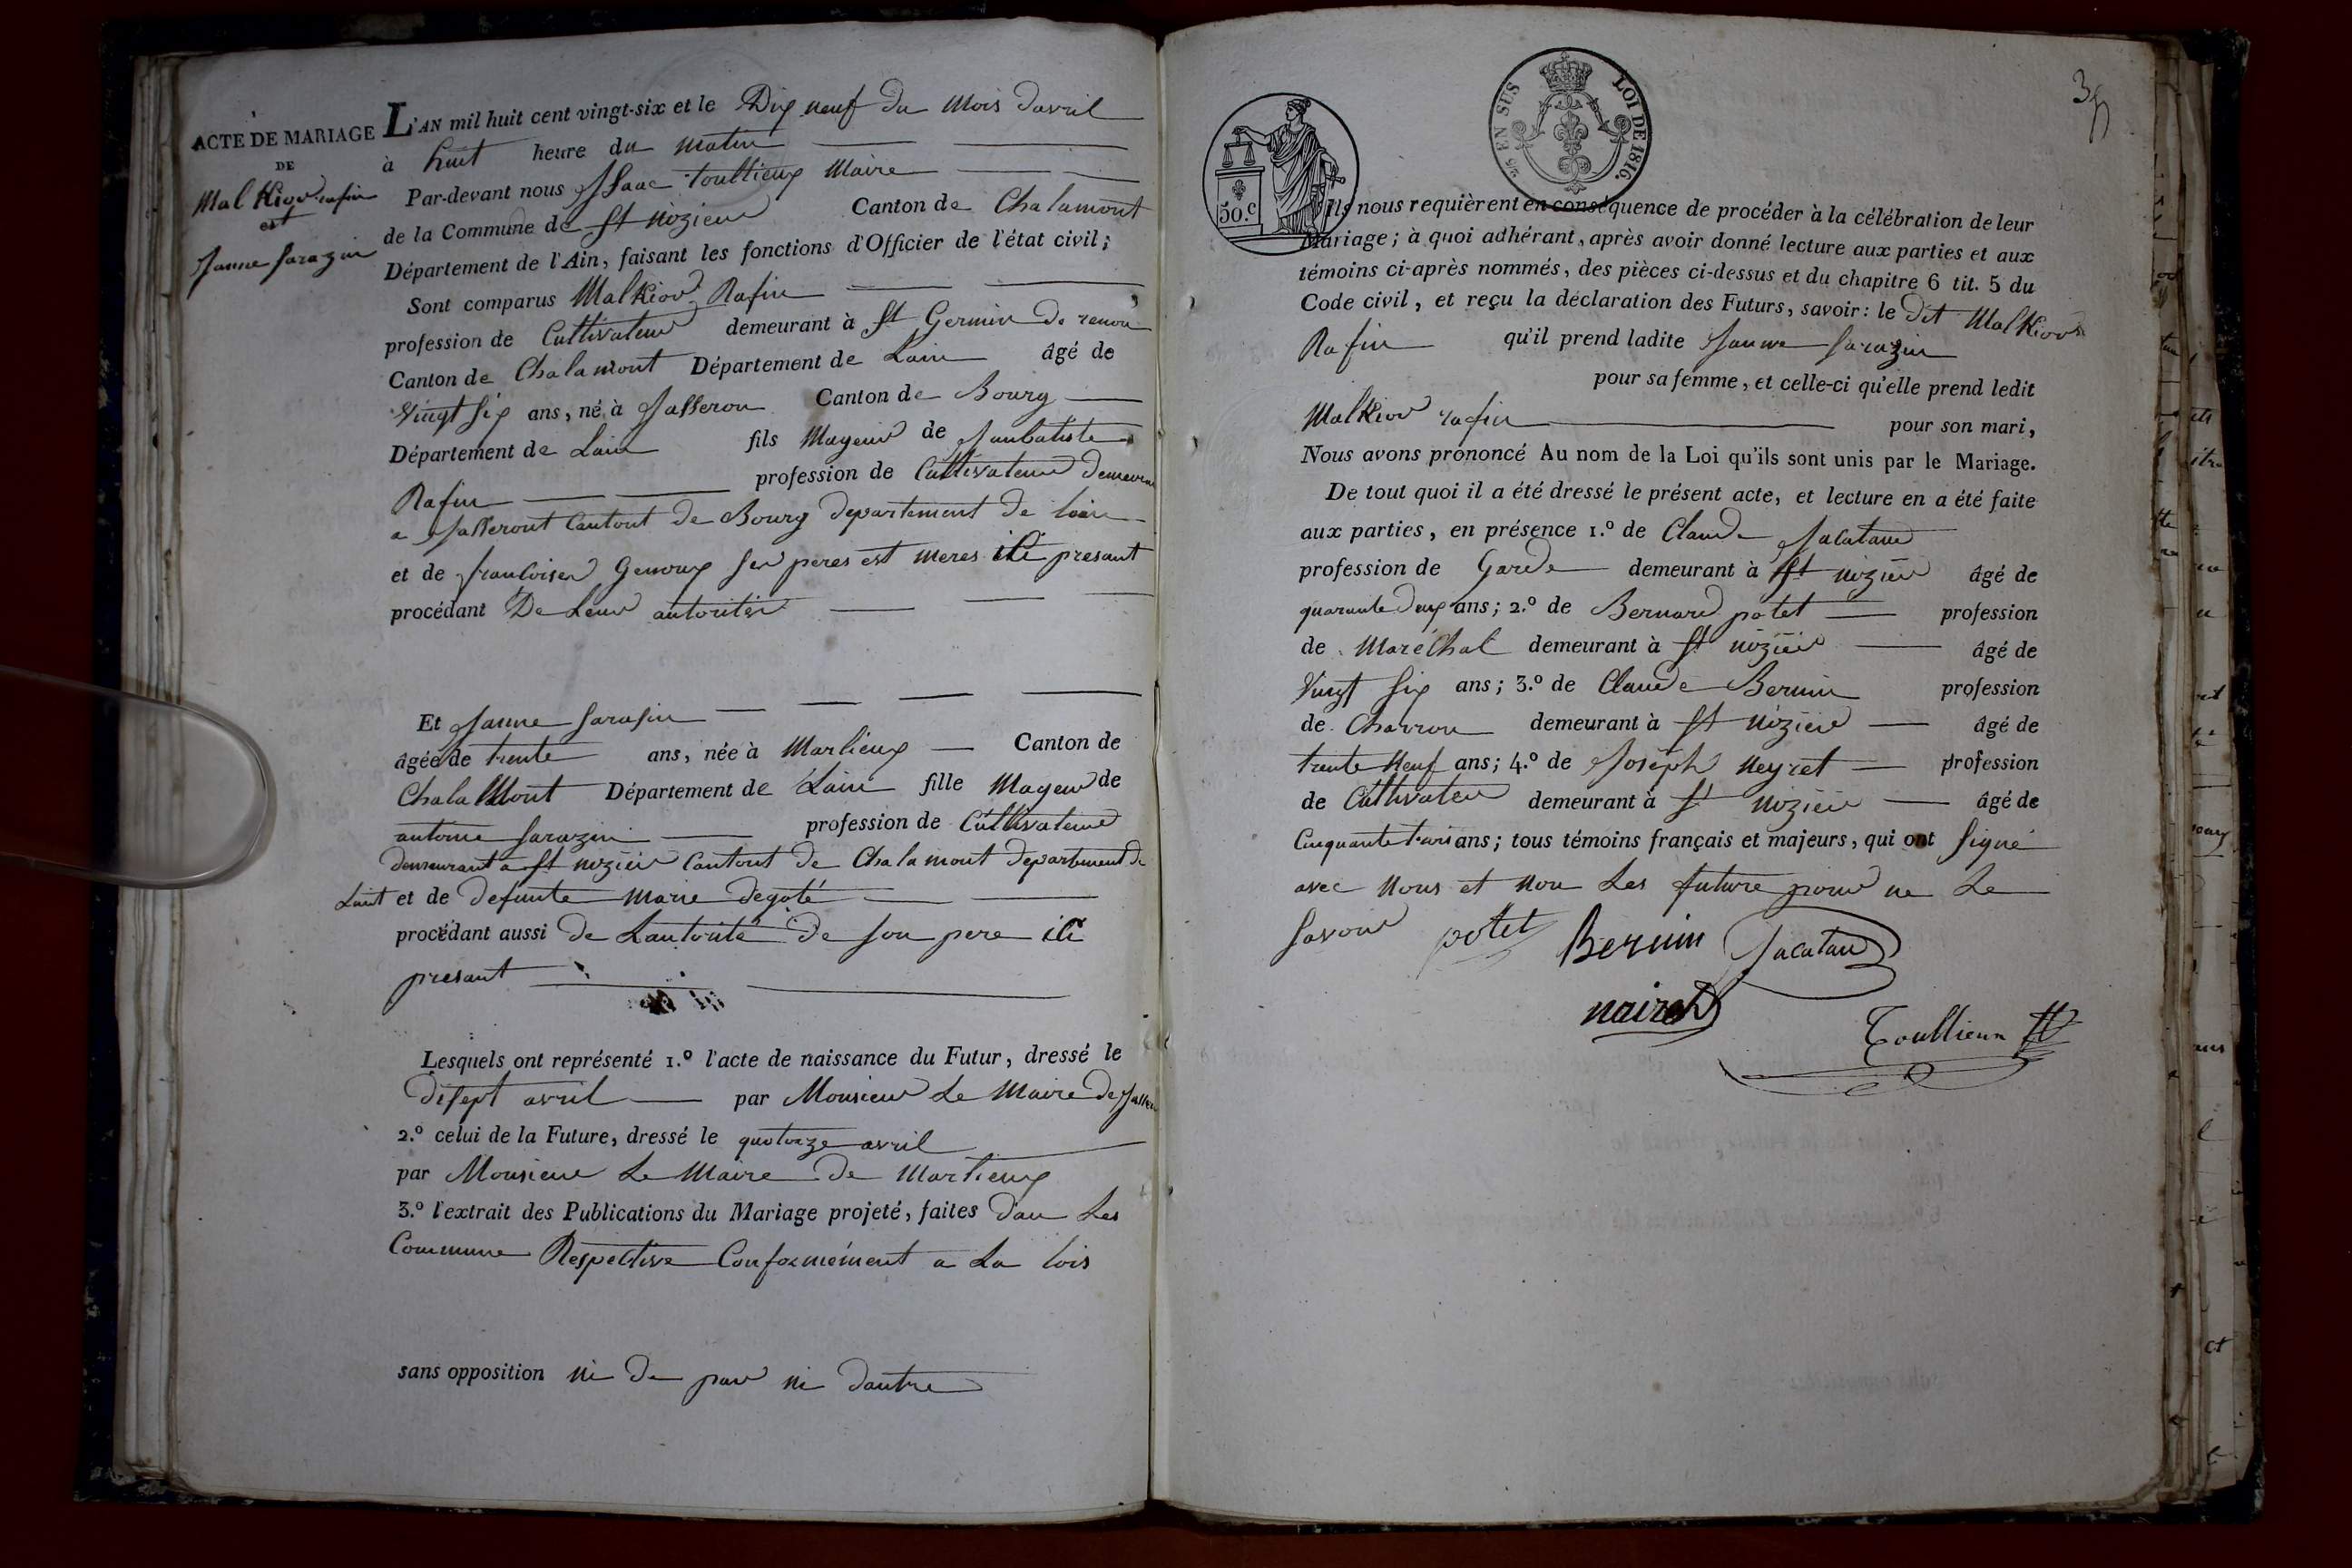 ACTE DE MARIAGE
DE
Malkior rafin
est
Janne Sarazin
L'AN mil huit cent vingt-six et le Dix neuf du Mois davril
à huit heure du matin
Par-devant nous Isaac Toullieux Maire
de la Commune de St Nizier Canton de Chalamont
Département de l'Ain, faisant les fonctions d'Officier de l'état civil;
Sont comparus Malkior Rafin
profession de Cultivateur demeurant à St Germin de renon
Canton de Chalamont Département de Lain âgé de
Vingt Six ans, né à Jasseron Canton de Bourg
Département de Lain fils Mageur de Janbatiste
Rafin profession de Cultivateur Demeuran
a Jasseront Cantont de Bourg departement de lain
et de francoise Genoux ses peres est meres ici presant
procédant De Leur autorités
Et Janne Sarasin
âgée de trente ans, née à Marlieux Canton de
Chalamont Département de Lain fille Mageur de
antoine Sarazin profession de Cultivateur
demeurant a St nizier Cantont de Chalamont departement de
Laint et de defunte marie degoté
procédant aussi de Lautorité de son pere ici
presant
Lesquels ont représenté 1.º l'acte de naissance du Futur, dressé le
disept avril par Monsieur Le Maire de
2.º celui de la Future, dressé le quatorze avril
par Monsieur Le Maire de Marlieux
3.º l'extrait des Publications du Mariage projeté, faites dan Les
Commune Respective Conformément a La lois
sans opposition ni de par ni dautre
50.c
EN SUS LOI DE 1816.
Ils nous requièrent en conséquence de procéder à la célébration de leur
Mariage; à quoi adhérant, après avoir donné lecture aux parties et aux
témoins ci-après nommés, des pièces ci-dessus et du chapitre 6 tit. 5 du
Code civil, et reçu la déclaration des Futurs, savoir: le dit Malkior
Rafin qu'il prend ladite Janne Sarazin
pour sa femme, et celle-ci qu'elle prend ledit
Malkior rafin pour son mari,
Nous avons prononcé Au nom de la Loi qu'ils sont unis par le Mariage.
De tout quoi il a été dressé le présent acte, et lecture en a été faite
aux parties, en présence 1.º de Claude Jacatau
profession de Garde demeurant à St nizier âgé de
quarante deux ans; 2.º de Bernard potet profession
de Maréchal demeurant à St nizier âgé de
Vingt Six ans; 3.º de Claude Bernin profession
de Charron demeurant à St Nizier âgé de
trente Neuf ans; 4.º de Joseph Neyret profession
de Cultivateur demeurant à St Nizier âgé de
Cinquante trois ans; tous témoins français et majeurs, qui ont Signé
avec Nous et Non Les future pour ne Le
Savoir potet Bernin Jacatau
nairet
Toullieux